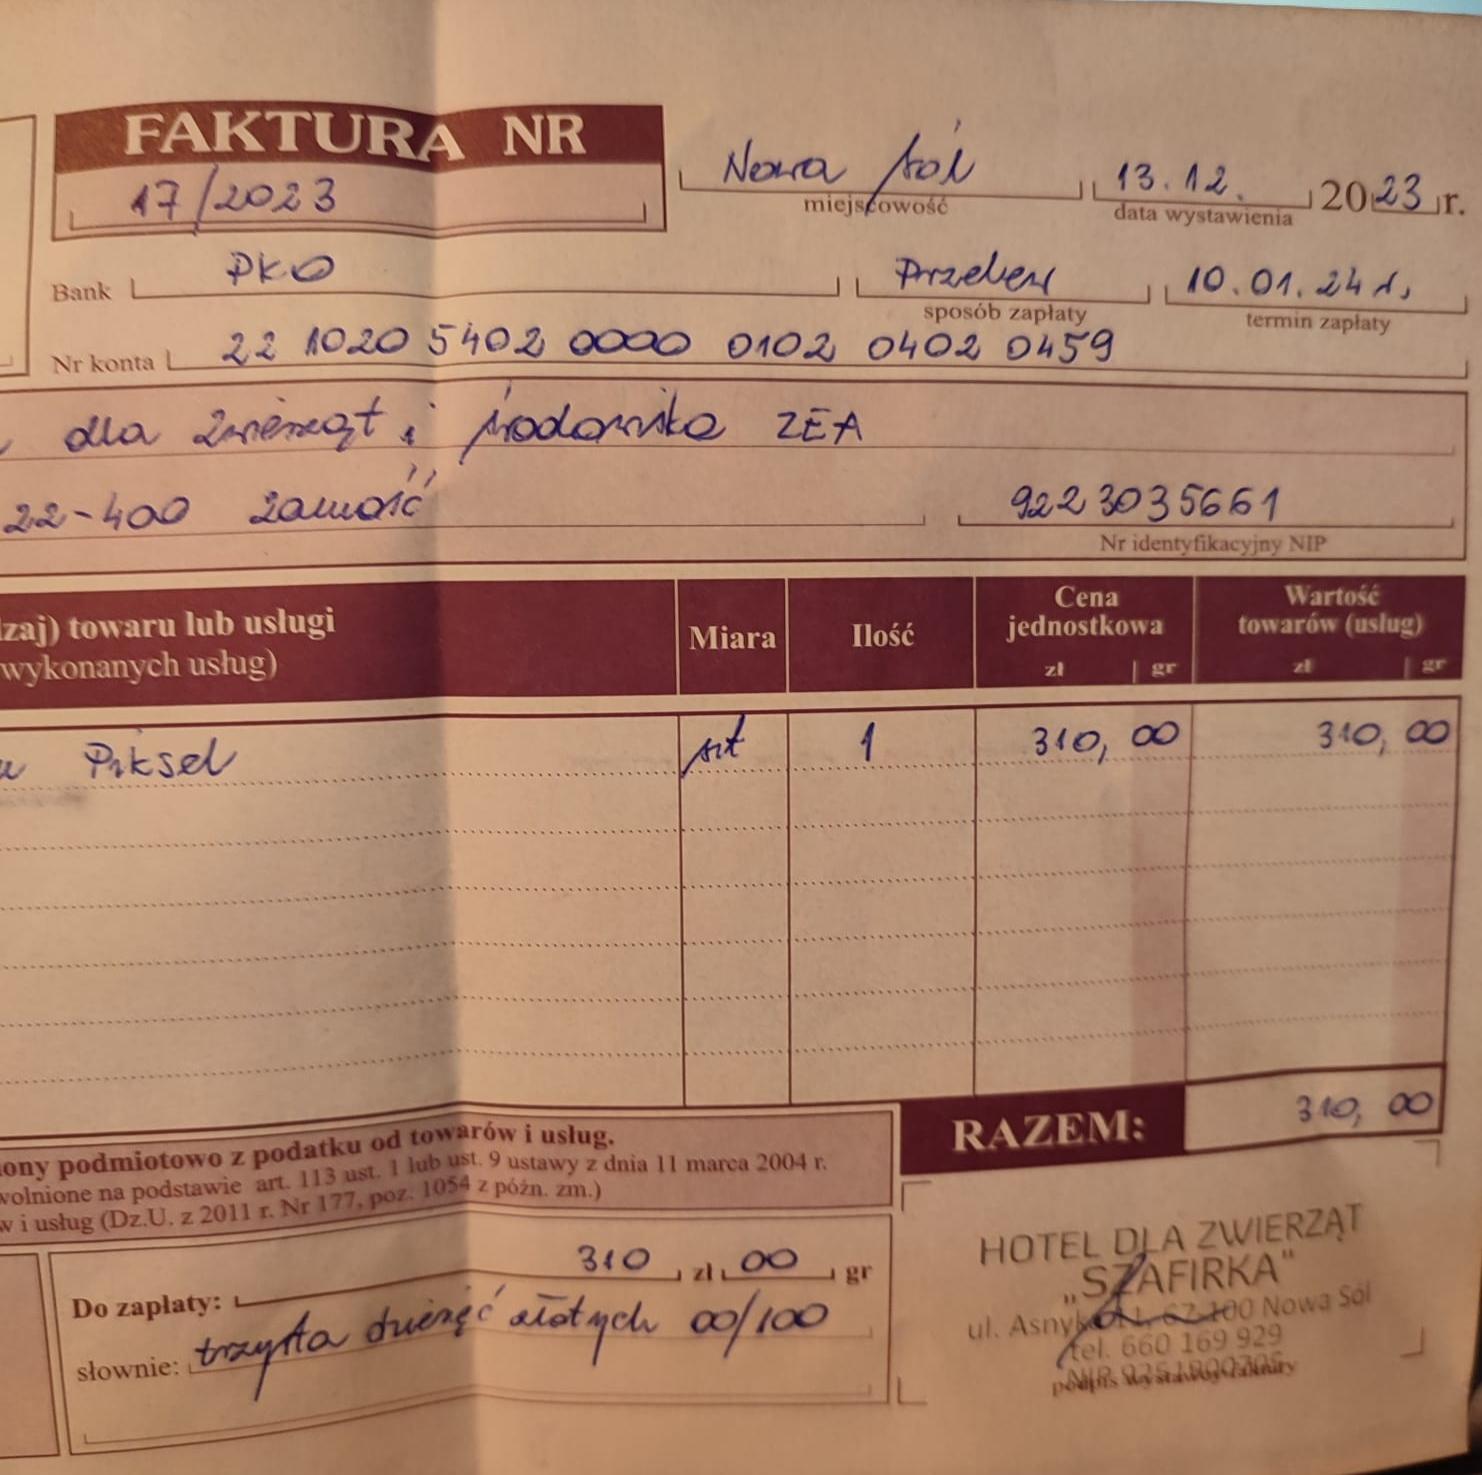 FAKTURA NR
17/2023
Nowa Sól 13.12. 2023 r.
miejscowość data wystawienia
Bank PKO Przelew 10.01.24 r.
sposób zapłaty termin zapłaty
Nr konta 22 1020 5402 0000 0102 0402 0459
dla zwierząt i środowiska ZEA
22-400 Zamość 9223035661
Nr identyfikacyjny NIP
zaj) towaru lub usługi
wykonanych usług)
Miara
Ilość
Cena
jednostkowa
zł gr
Wartość
towarów (usług)
zł gr
Piksel szt 1 310,00 310,00
RAZEM: 310,00
ony podmiotowo z podatku od towarów i usług.
wolnione na podstawie art. 113 ust. 1 lub ust. 9 ustawy z dnia 11 marca 2004 r.
w i usług (Dz.U. z 2011 r. Nr 177, poz. 1054 z późn. zm.)
Do zapłaty: 310 zł 00 gr
słownie: trzysta dziesięć złotych 00/100
HOTEL DLA ZWIERZĄT
„SZAFIRKA"
ul. 67-100 Nowa Sól
tel. 660 169 929
NIP
podpis wystawcy faktury